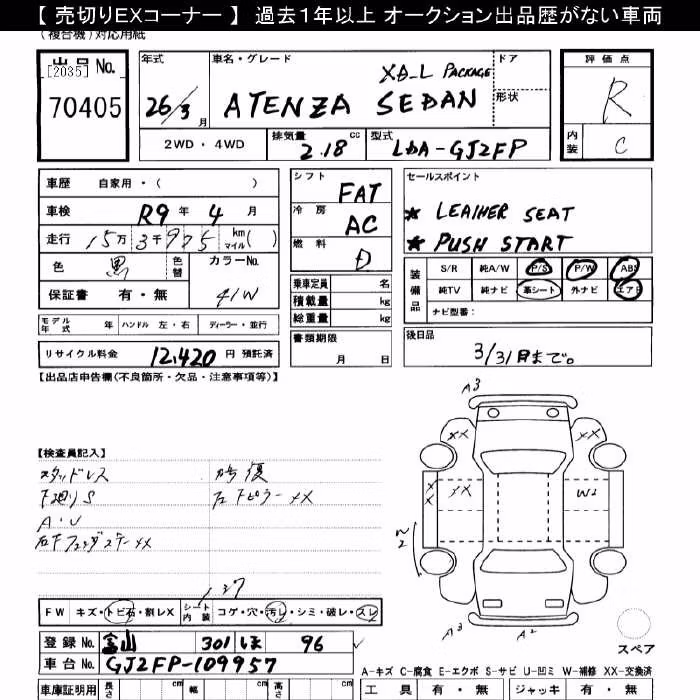 【 売切りEXコーナー 】 過去1年以上 オークション出品歴がない車両
(複合機)対応用紙
出品 No.
[2035]
70405
年式
26/3月
車名・グレード
XD_L PACKAGE
ATENZA SEDAN
ドア
形状
評価点
R
内装
C
2WD・4WD
排気量
2.18
cc
型式
LDA-GJ2FP
車歴 自家用・( )
車検 R9年 4月
走行 15万 3千975 km マイル( )
色 黒 色替
カラーNo. 41W
保証書 有・無
モデル年式 年 ハンドル 左・右 ディーラー・並行
リサイクル料金 12,420 円 預託済
シフト FAT
冷房 AC
燃料 D
乗車定員 名
積載量 kg
総重量 kg
書類期限
月 日
セールスポイント
★ LEATHER SEAT
★ PUSH START
装備品
S/R 純A/W P/S P/W ABS
純TV 純ナビ 革シート 外ナビ エアB
ナビ型番:
後日品
3/31日まで。
【出品店申告欄(不良箇所・欠品・注意事項等)】
【検査員記入】
スタッドレス
下廻りS
A・U
右下ピラー XX
A3
XX
XX
XX
W2
W2
A3
A2
スペア
137
FW キズ・トビ石・割レX
シート内装 コゲ・穴・汚レ・シミ・破レ・スレ
登録 No. 富山 301 ほ 96
車台 No. GJ2FP-109957
A-キズ C-腐食 E-エクボ S-サビ U-凹ミ W-補修 XX-交換済
車庫証明用 長さ cm 幅 cm 高さ cm
工具 有・無 ジャッキ 有・無